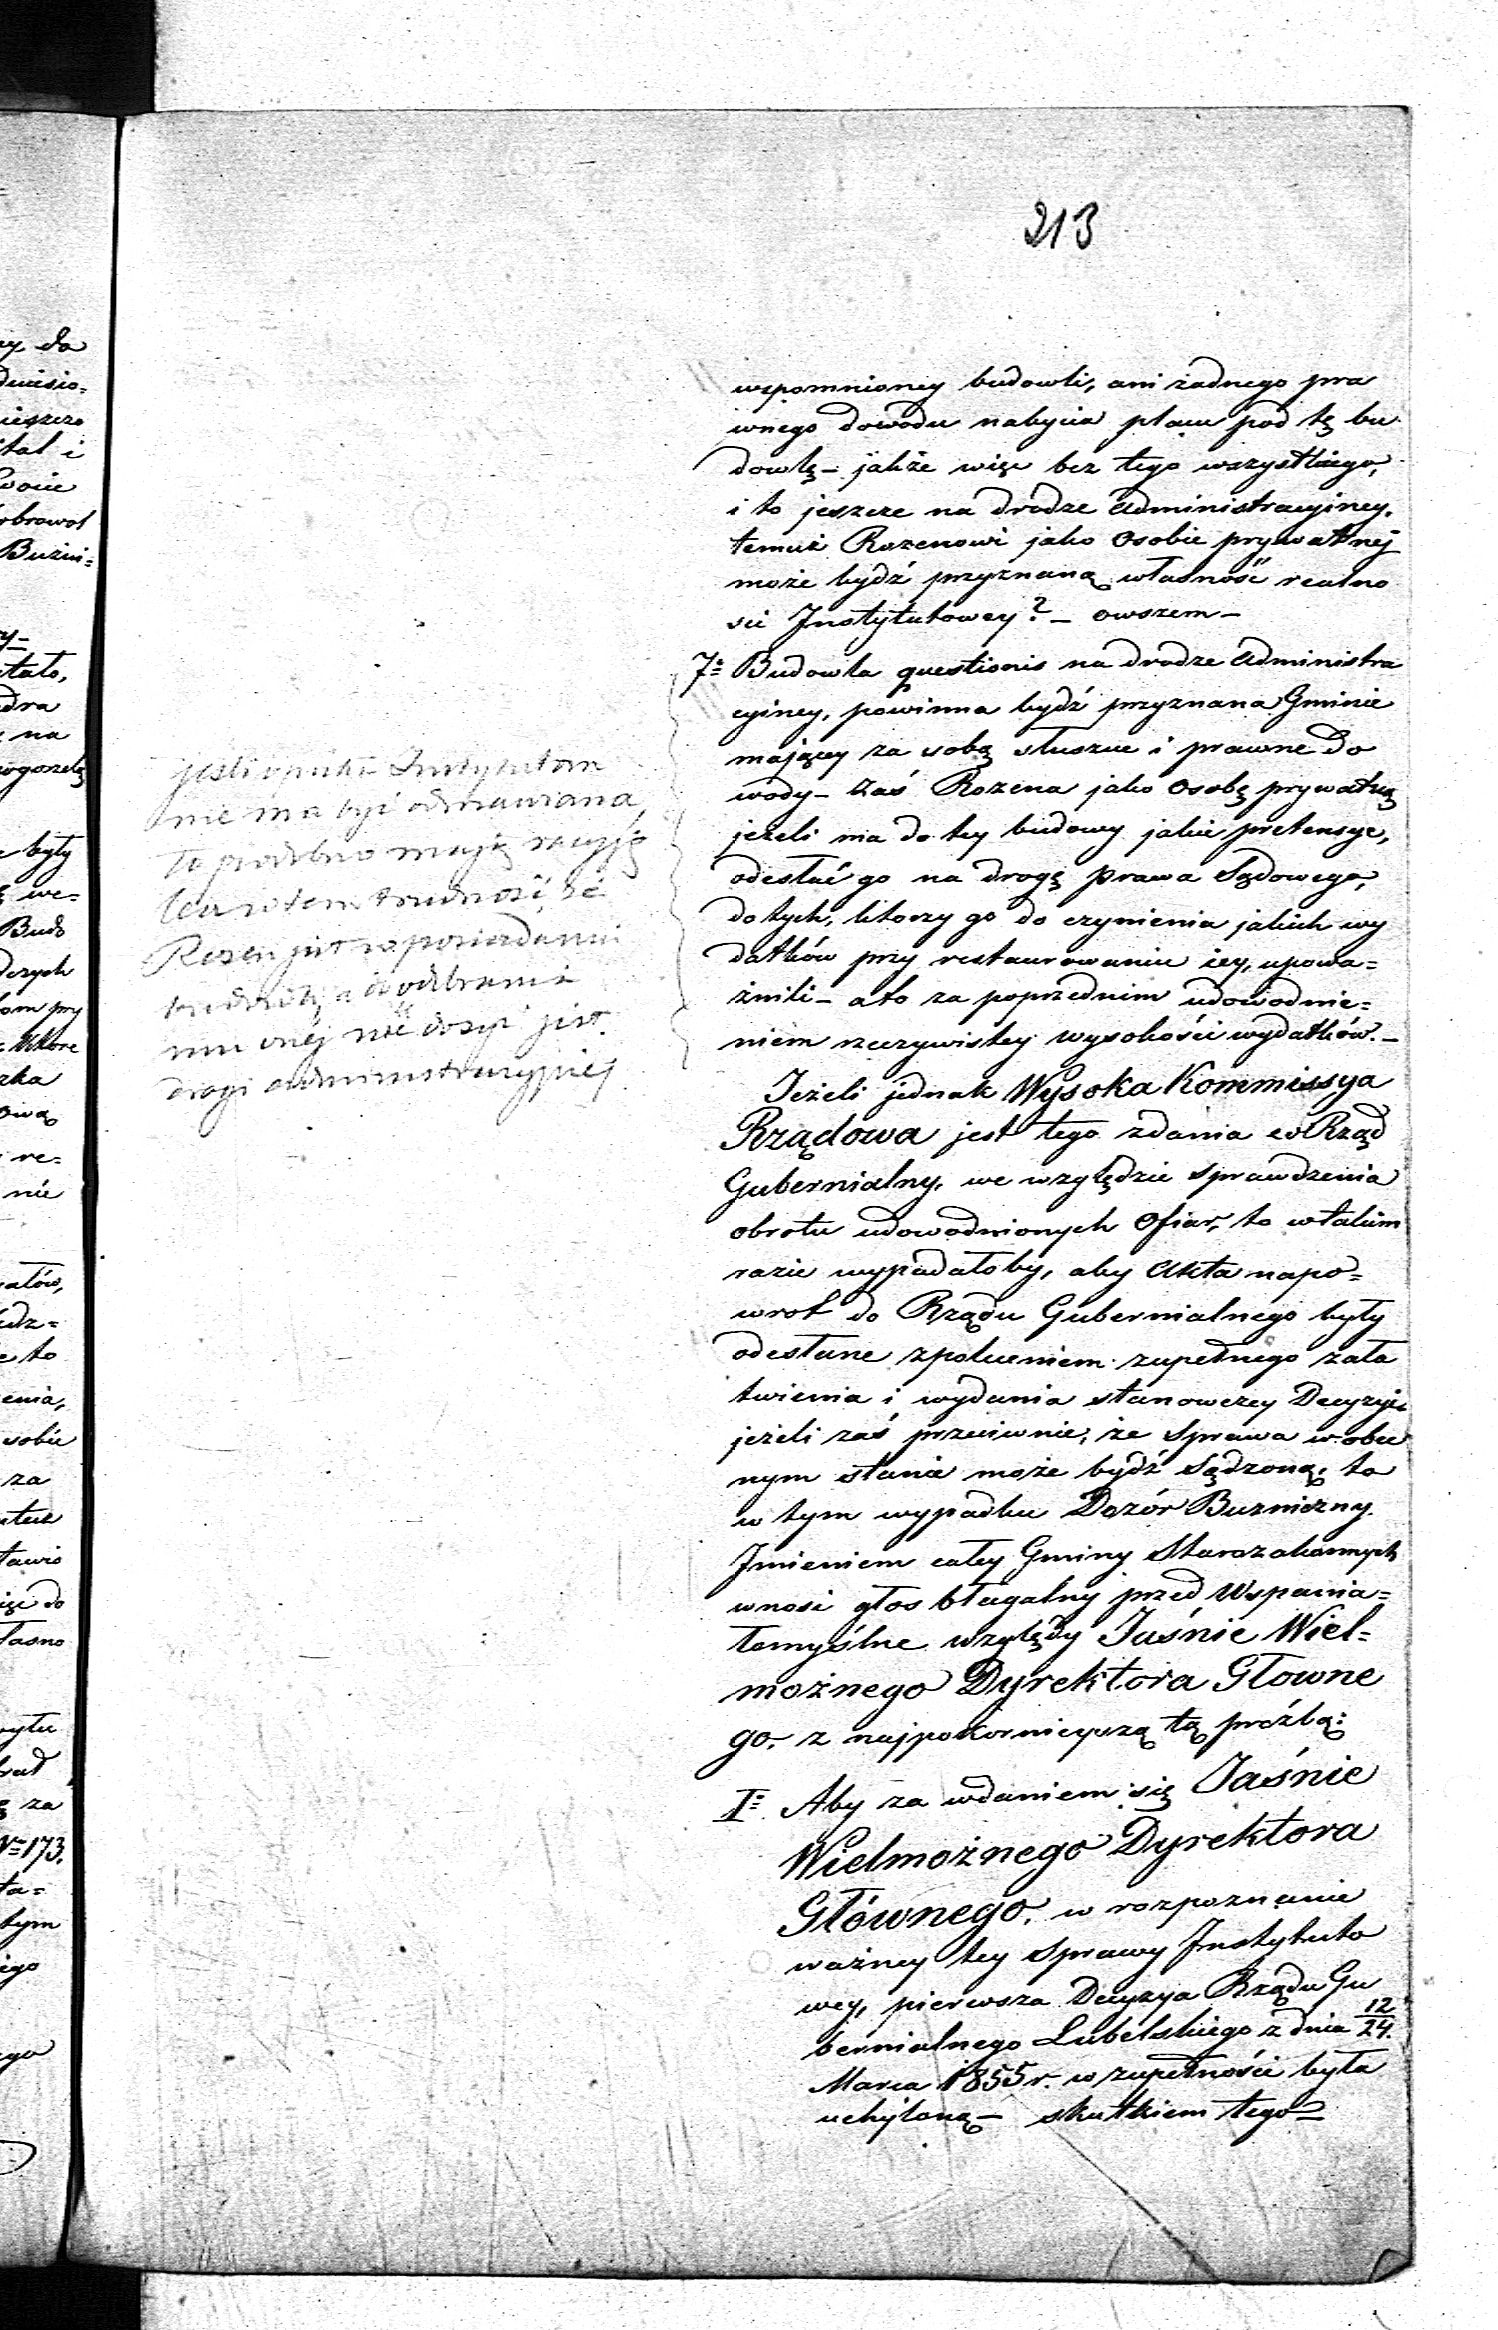 213
wspomnioney budowli, ani żadnego pra
wnego dowodu nabycia placu pod tę bu
dowlę – jakże więc bez tego wszystkiego,
i to jeszcze na drodze Administracyiney,
temuż Rozenowi jako Osobie prywatnéj
może bydź przyznaną własność realno
ści Instytutowey? – owszem –
7º Budowla questionis na drodze Administra
cyiney, powinna bydź przyznana Gminie
maiącey za sobą słuszne i prawne Do
wody – zaś Rozena jako Osobę prywatną
jeżeli ma do tey budowy jakie pretensye,
odesłać go na drogę prawa Sądowego,
do tych, którzy go do czynienia jakich wy
datków przy restaurowaniu iey, upowa=
żnili – a to za poprzednim udowodnie=
niem rzeczywistey wysokości wydatków. –
Jeżeli jednak Wysoka Kommissya
Rządowa jest tego zdania co Rząd
Gubernialny, we względzie sprawdzenia
obrotu udowodnionych Ofiar, to w takim
razie wypadałoby, aby Akta napo=
wrot do Rządu Gubernialnego były
odesłane z poleceniem zupełnego zała
twienia i wydania stanowczey Decyzyi,
jeżeli zaś przeciwnie, że Sprawa w obec
nym stanie może bydź Sądzoną, to
w tym wypadku Dozór Bużniczny
Imieniem całey Gminy Starozakonnych
wnosi głos błagalny przed Wspania=
łomyślne względy Jaśnie Wiel=
możnego Dyrektora Głowne
go. z najpokornieyszą tą proźbą:
I= Aby za wdaniem się Jaśnie
Wielmożnego Dyrektora
Głównego, w rozpoznanie
ważney tey Sprawy Instytuto
wey, pierwsza Decyzya Rządu Gu
bernialnego Lubelskiego z dnia 12/24.
Marca 1855 r. w zupełności była
uchyloną – skutkiem tego –
jeśli opieka Instytutom
nie ma być odmawiana,
to podobno mają racyję
lecz w tem trudność, że
Rozen jest w posiadaniu
a do odebrania
mu onej nie dosyć jest
drogi administracyjnej